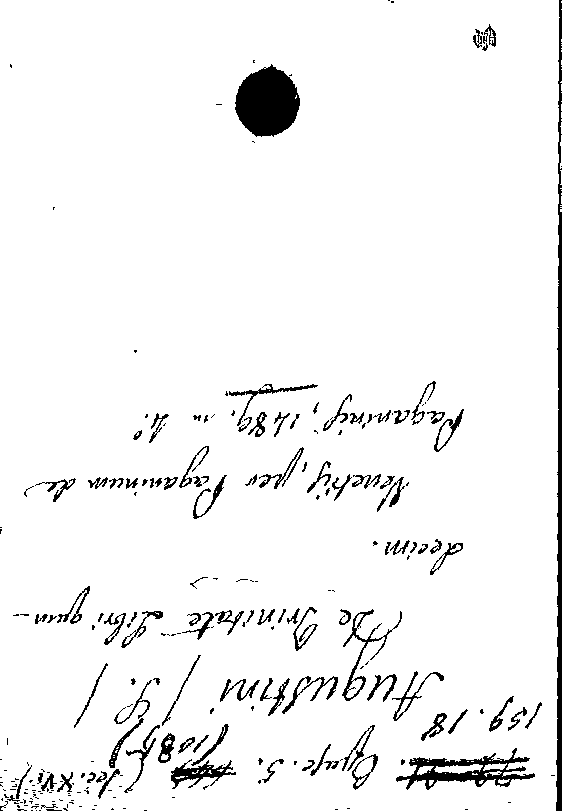 159.18
(Sec. XVI.)
Augustini / S. /
De Trinitate Libri quin-
decim.
Venetijs, per Paganinum de
Paganinis, 1489. in 4.°